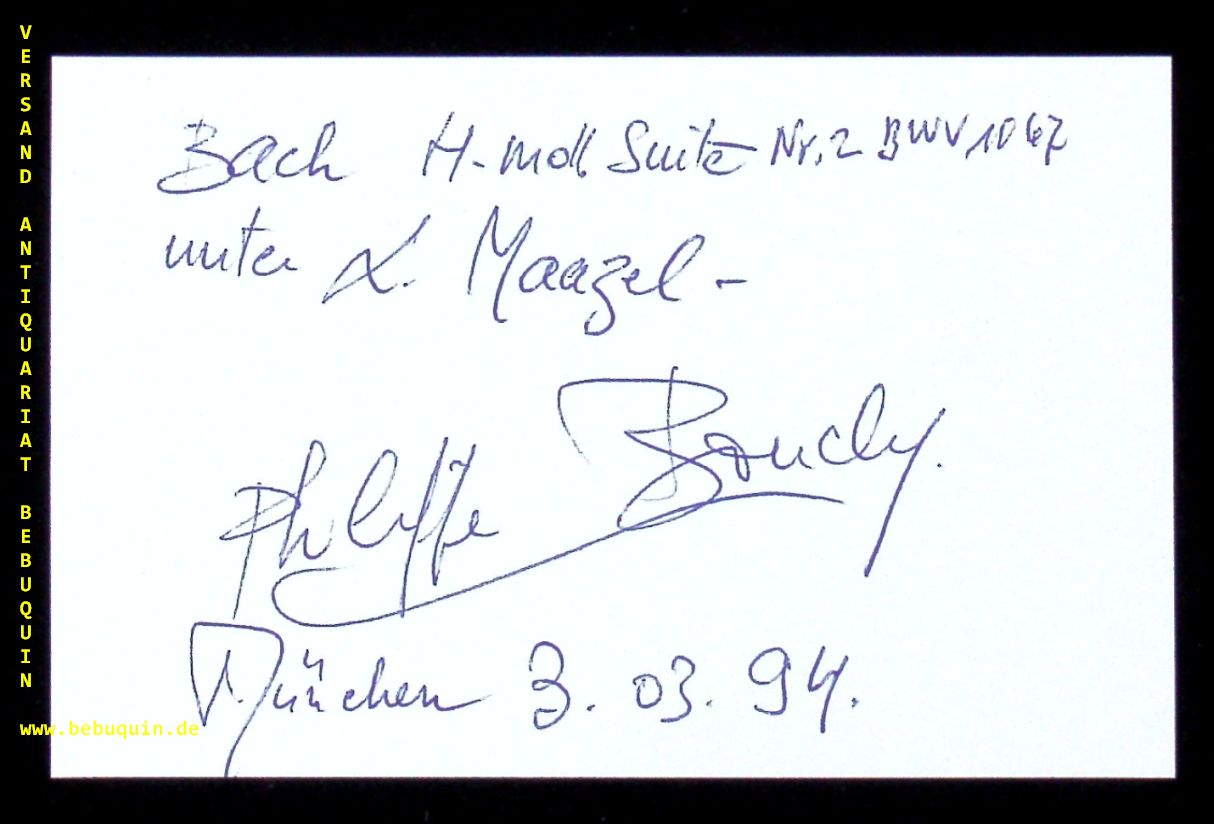 VERSAND ANTIQUARIAT BEBUQUIN
www.bebuquin.de
Bach H-moll Suite Nr. 2 BWV 1067
unter L. Maazel -
Philippe Boucly.
München 3. 03. 94.